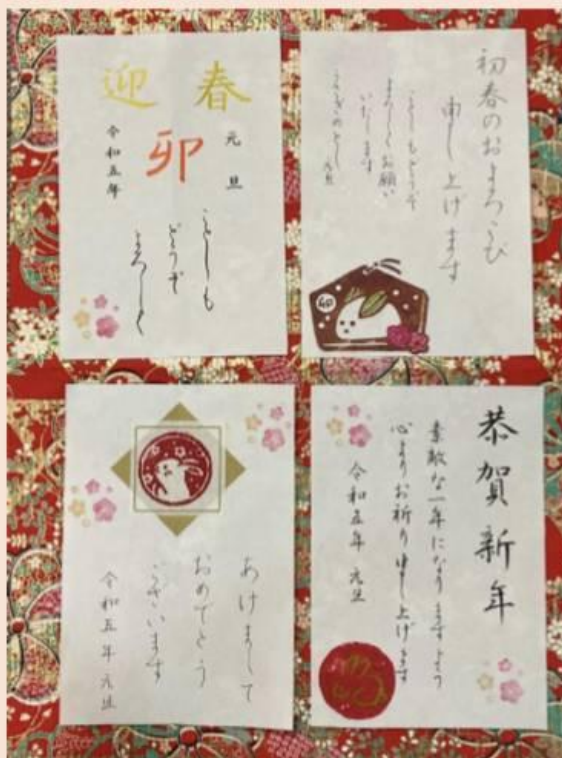 迎春
卯
元旦
令和五年
ことしも
どうぞ
よろしく
初春のおよろこび
申し上げます
ことしもどうぞ
よろしくお願い
いたします
うさぎのとし 元旦
卯
あけまして
おめでとう
ございます
令和五年元旦
恭賀新年
素敵な一年になりますよう
心よりお祈り申し上げます
令和五年 元旦